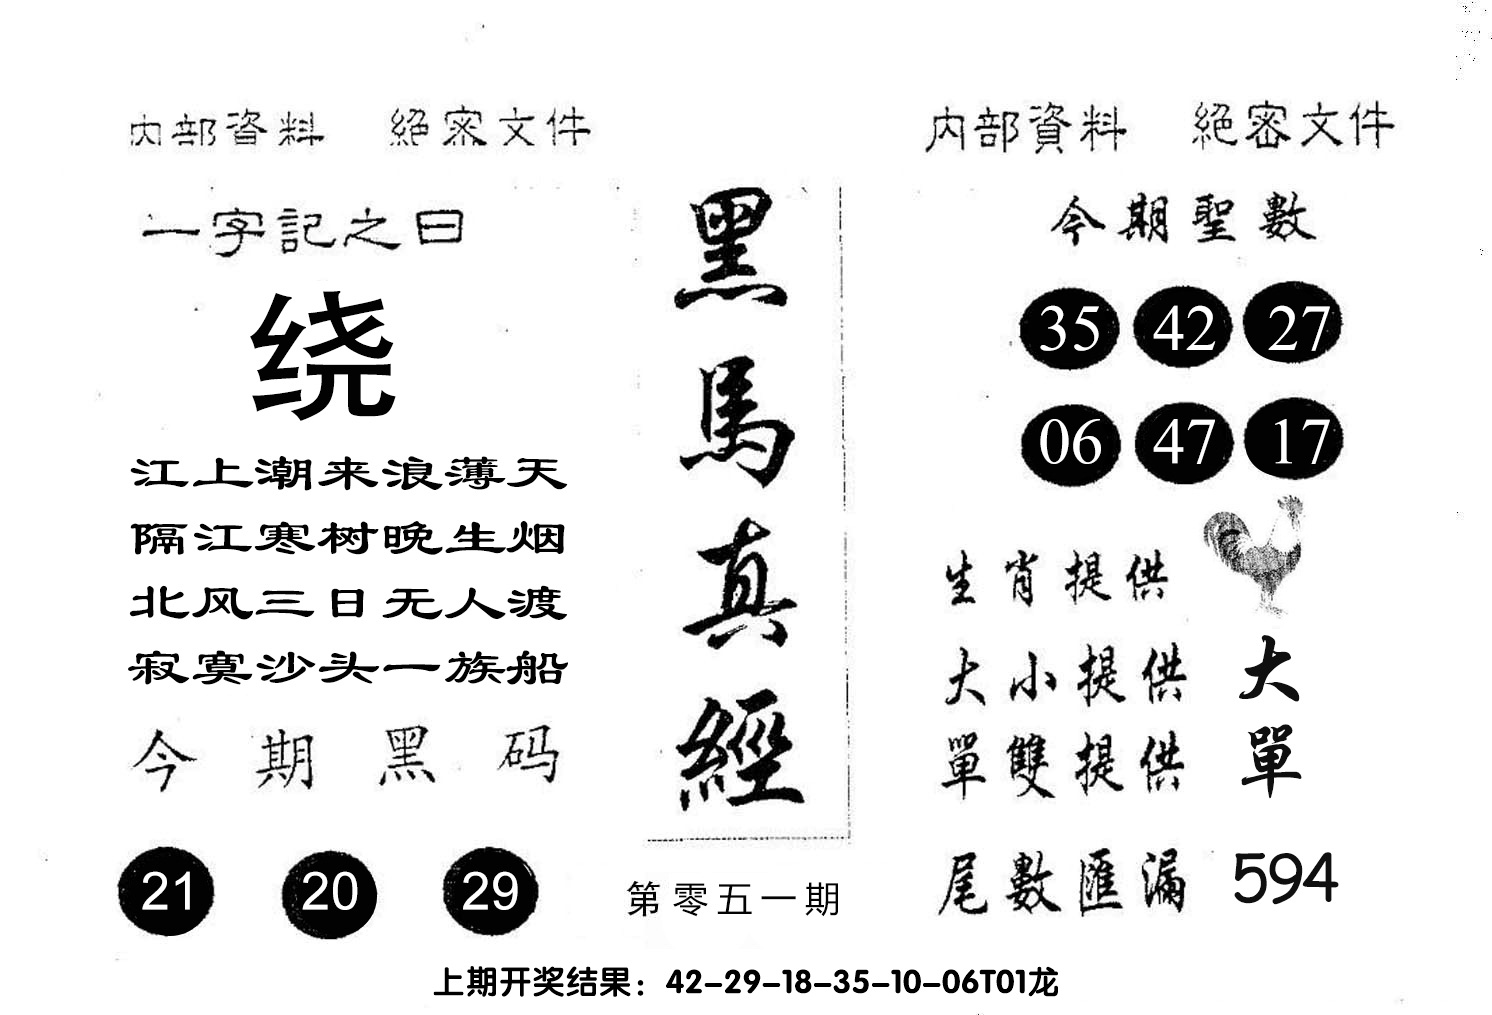 内部資料 絕密文件
一字記之曰
绕
江上潮来浪薄天
隔江寒树晚生烟
北风三日无人渡
寂寞沙头一族船
今期黑码
21 20 29
黑馬真經
第零五一期
内部資料 絕密文件
今期聖數
35 42 27
06 47 17
生肖提供
大小提供 大
單雙提供 單
尾數匯漏 594
上期开奖结果：42-29-18-35-10-06T01龙